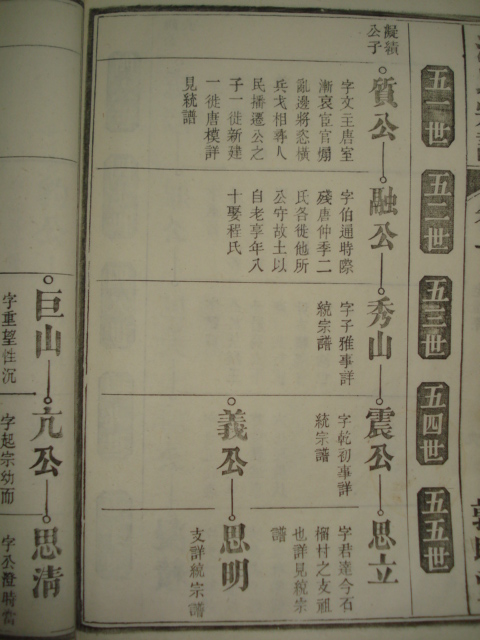 五一世
五二世
五三世
五四世
五五世
擬績
公子
質公
字文主唐室
漸衰宦官煽
亂邊將恣橫
兵戈相尋人
民播遷公之
子一徙新建
一徙唐模詳
見統譜
融公
字伯通時際
殘唐仲季二
氏各徙他所
公守故土以
自老享年八
十娶程氏
秀山
字子雅事詳
統宗譜
震公
字乾初事詳
統宗譜
思立
字君達今石
榴村之支祖
也詳見統宗
譜
義公
思明
支詳統宗譜
巨山
字重望性沉
亢公
字起宗幼而
思清
字公澄時當